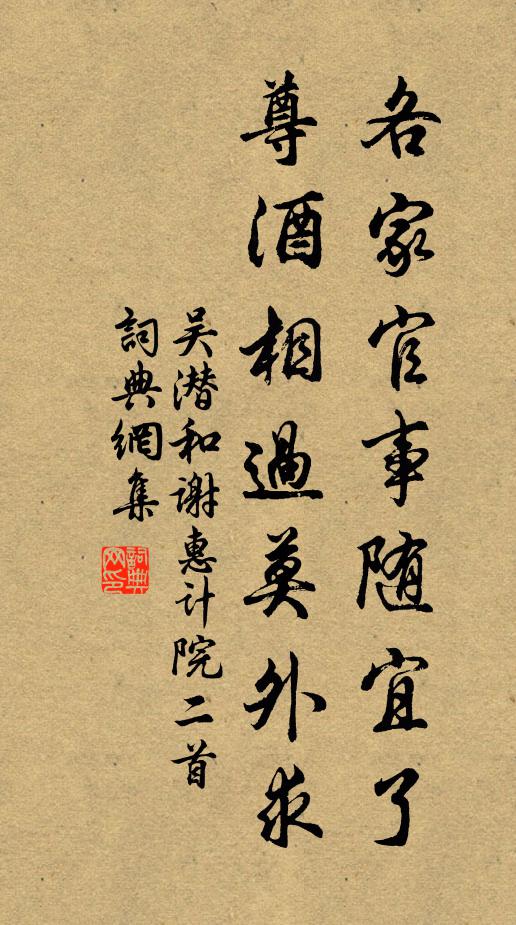 各家官事随宜了
尊酒相過莫外求
吴潜和谢惠计院二首
詞典網集
詞典
网印